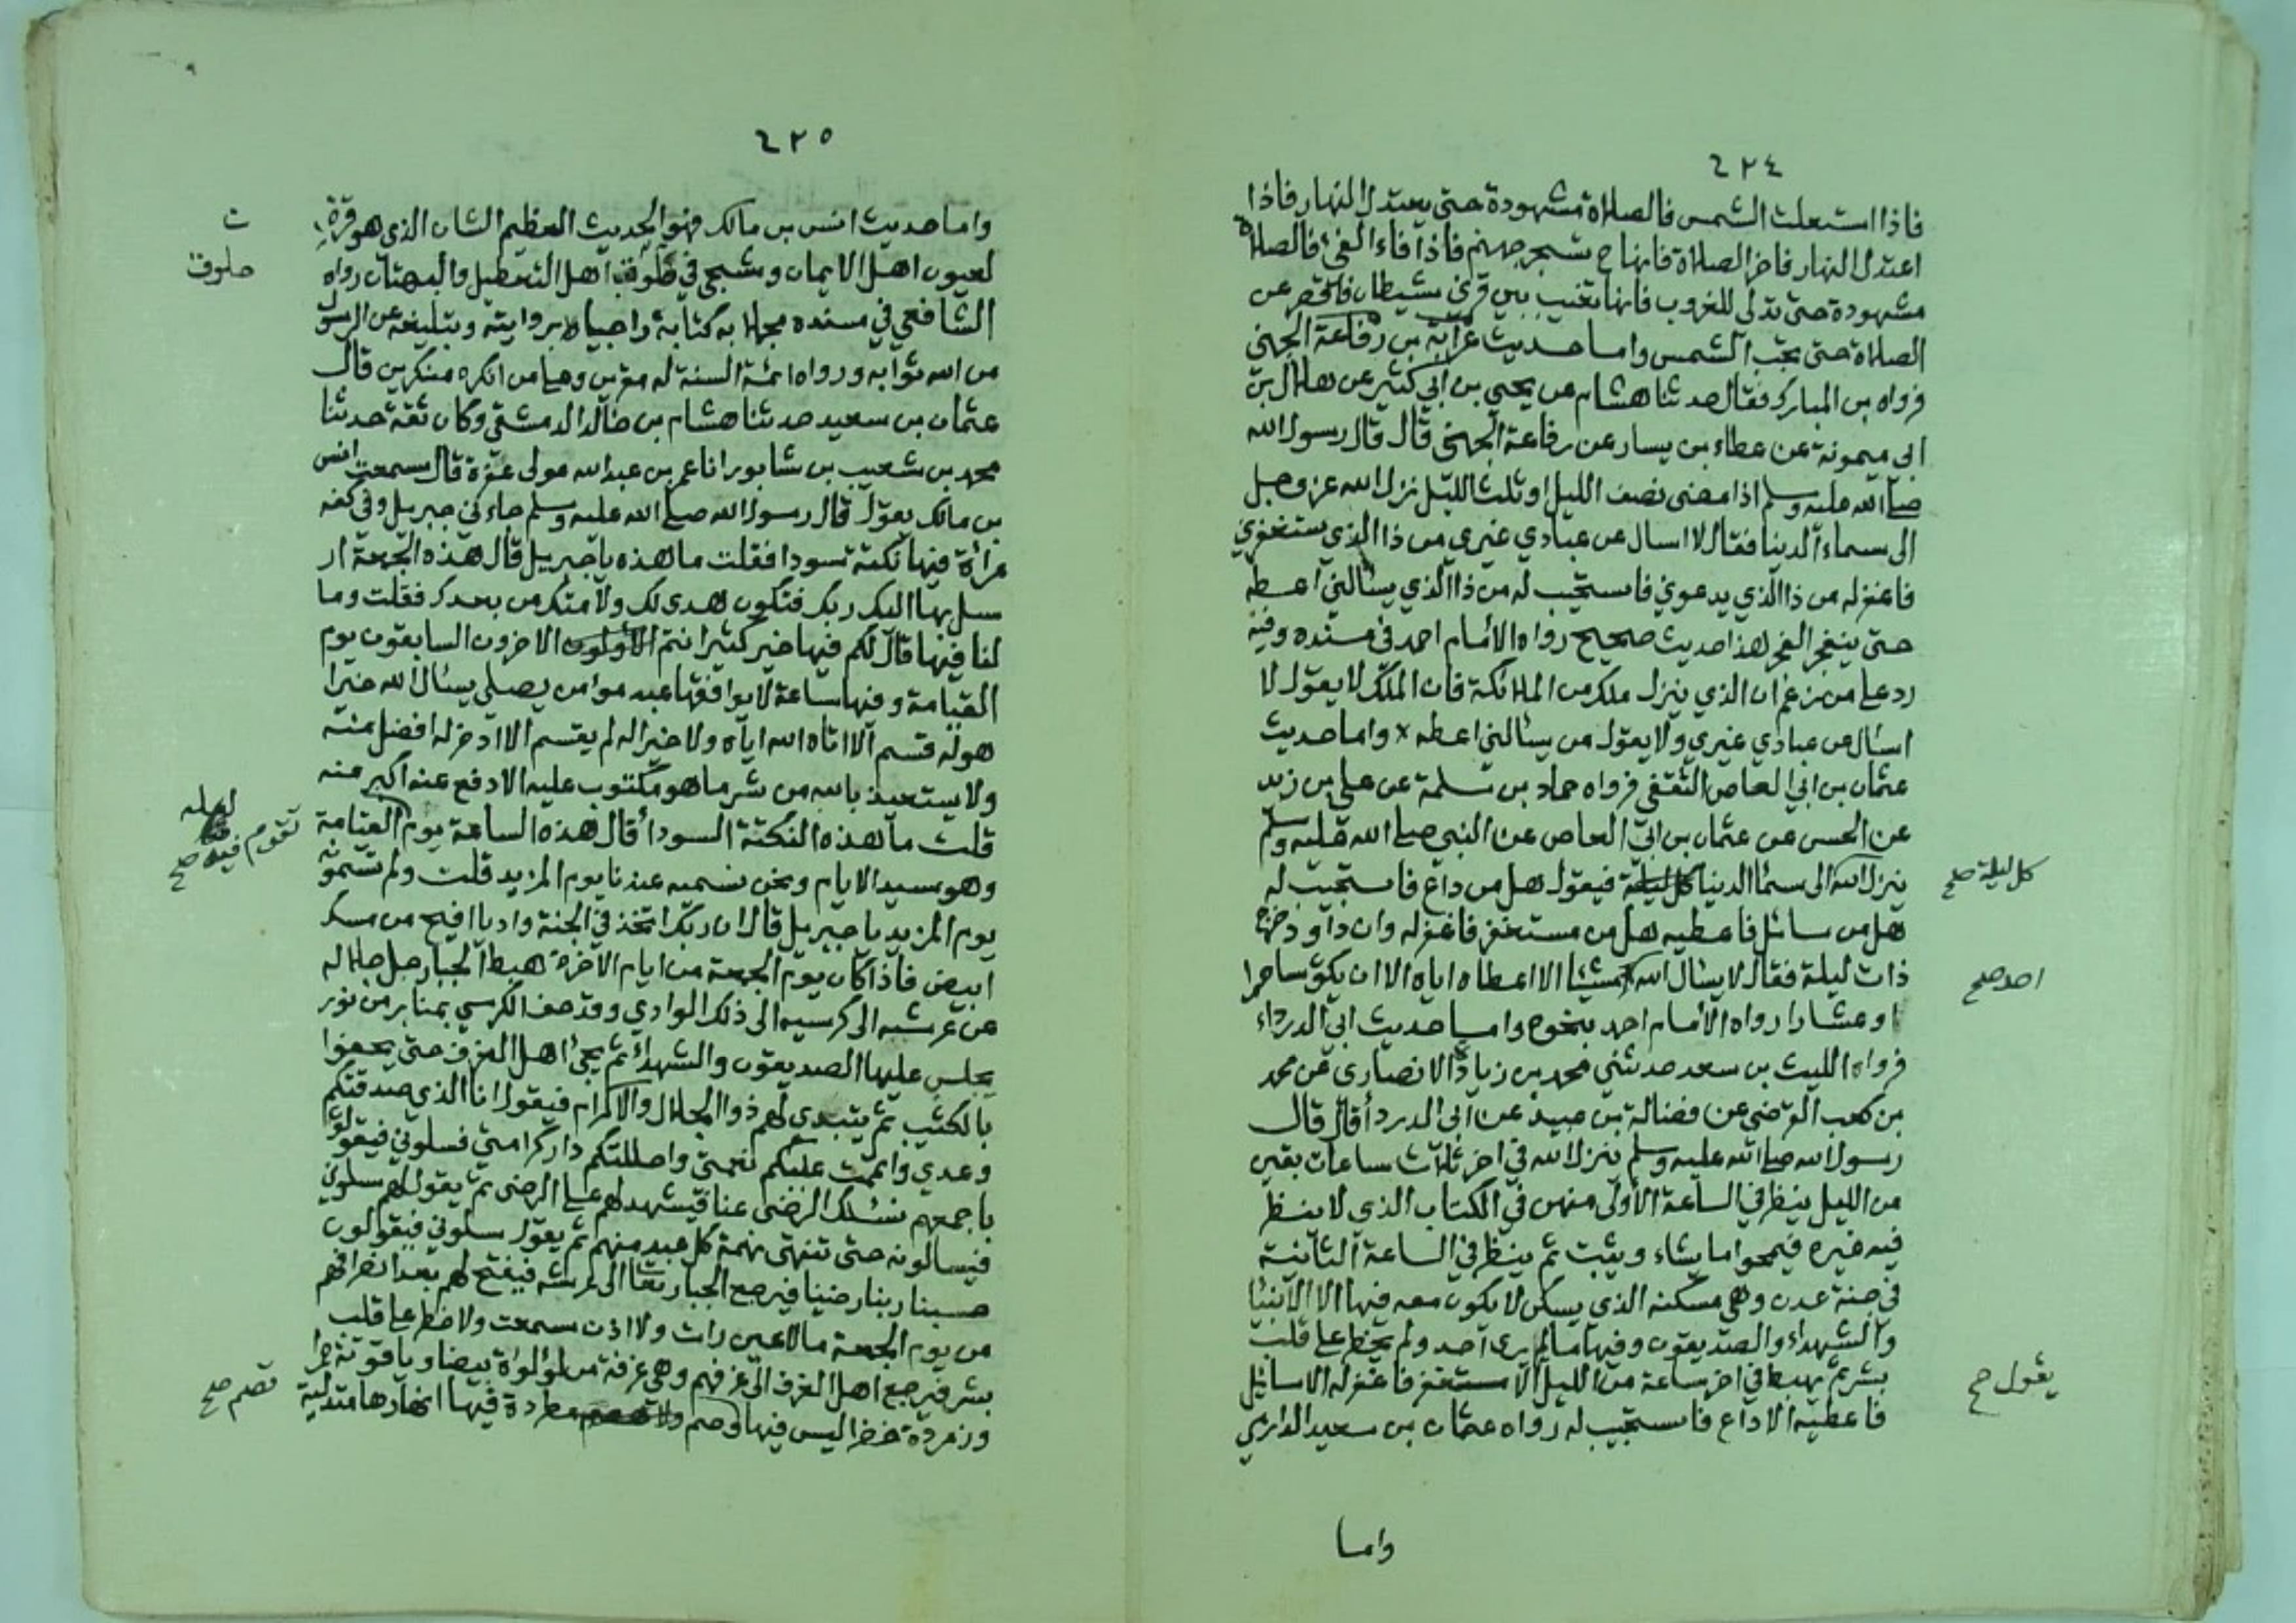 ٤٢٤
فاذا استعلت الشمس فالصلاة مشهودة حتى يعتدل النهار فاذا
اعتدل النهار فاخر الصلاة فانها ح تسجر جهنم فاذا فاء الفئ فالصلاة
مشهودة حتى تدلى للغروب فانها تغيب بين قرني شيطان فاقصر عن
الصلاة حتى تجب الشمس واما حديث عرابة بن رفاعة الجهني
فرواه بن المبارك فقال حدثنا هشام عن يحيى بن ابي كثير عن هلال بن
ابي ميمونة عن عطاء بن يسار عن رفاعة الجهني قال قال رسول الله
صلى الله عليه وسلم اذا مضى نصف الليل او ثلث الليل نزل الله عز وجل
الى سماء الدنيا فقال لا اسال عن عبادي غيري من ذا الذي يستغفرني
فاغفر له من ذا الذي يدعوني فاستجيب له من ذا الذي يسالني اعطه
حتى ينفجر الفجر هذا حديث صحيح رواه الامام احمد في مسنده وفيه
رد على من زعم ان الذي ينزل ملك من الملائكة فان الملك لا يقول لا
اسئال عن عبادي غيري ولا يقول من يسئالني اعطه × واما حديث
عثمان بن ابي العاص الثقفي فرواه حماد بن سلمة عن علي بن زيد
عن الحسن عن عثمان بن ابي العاص عن النبي صلى الله عليه وسلم
ينزل الله الى سماء الدنيا كل ليلة فيقول هل من داع فاستجيب له
كل ليلة صح
هل من سائل فاعطيه هل من مستغفر فاغفر له وان داوود خرج
ذات ليلة فقال لا يسئال الله شيئا الا اعطاه اياه الا ان يكون ساحرا
احد صح
او عشارا رواه الامام احمد بنحوه واما حديث ابي الدرداء
فرواه الليث بن سعد حدثني محمد بن زياد الانصاري عن محمد
بن كعب القرضي عن فضالة بن عبيد عن ابي الدردأ قال قال
رسول الله صلى الله عليه وسلم ينزل الله في اخر ثلاث ساعات بقين
من الليل ينظر في الساعة الأولى منهن في الكتاب الذي لا ينظر
فيه غيره فيمحوا ما يشاء ويثبت ثم ينظر في الساعة الثانية
في جنة عدن وهي مسكنه الذي يسكن لا يكون معه فيها الا الانبيا
والشهداء والصديقون وفيها ما لم يرى احد ولم يخطر على قلب
بشر ثم يهبط في اخر ساعة من الليل الا مستغفر فاغفر له الا سائل
يقول صح
فاعطيه الا داع فاستجيب له رواه عثمان بن سعيد الدارمي
واما
٤٢٥
واما حديث انس بن مالك فهو الحديث العظيم الشان الذي هو قرة
لعيون اهل الايمان وشجى في حلوق اهل التعطيل والبهتان رواه
حلوق
الشافعي في مسنده مجملا به كتابة راجيا بروايته وبتليغه عن الرسول
من الله ثوابه ورواه ائمة السنة له مقرين وعلى من انكره منكرين قال
عثمان بن سعيد حدثنا هشام بن خالد الدمشقي وكان ثقة حدثنا
محمد بن شعيب بن شابور انا عمر بن عبد الله مولى غفرة قال سمعت انس
بن مالك يقول قال رسول الله صلى الله عليه وسلم جاءني جبريل وفي كفه
مرأة فيها نكتة سودا فقلت ما هذه يا جبريل قال هذه الجمعة ار
سل بها اليك ربك فتكون هدى لك ولامتك من بعدك فقلت وما
لنا فيها قال لكم فيها خير كثير انتم الاخرون السابقون يوم
القيامة وفيها ساعة لا يوافقها عبد موامن يصلي يسئال الله خيرا
هو له قسم الا اتاه الله اياه ولا خيرا له لم يقسم الا ادخر له افضل منه
ولا يستعيذ بالله من شر ما هو مكتوب عليه الا دفع عنه اكبر منه
قلت ما هذه النكتة السودا أقال هذه الساعة يوم القيامة
لعله
تقوم فيه صح
وهو سيد الايام ونحن نسميه عندنا يوم المزيد قلت ولم تسموه
يوم المزيد يا جبريل قال ان ربك اتخذ في الجنة واديا افيح من مسك
ابيض فاذا كان يوم الجمعة من ايام الآخرة هبط الجبار جل جلاله
عن عرشه الى كرسيه الى ذلك الوادي وقد حف الكرسي بمنابر من نور
يجلس عليها الصديقون والشهداء ثم يجئ اهل الغرف حتى يحفوا
بالكثيب ثم يتبدى لهم ذو الجلال والاكرام فيقول انا الذي صدقتكم
وعدي واتممت عليكم نعمتي واحللتكم دار كرامتي فسلوني فيقولوا
باجمعهم نسئلك الرضى عنا فيشهد لهم على الرضى ثم يقول لهم سلوني
فيسالونه حتى تنتهي نهمة كل عبد منهم ثم يقول سلوني فيقولون
حسبنا ربنا رضينا فيرجع الجبار تعا الى عرشه فيفتح لهم بعد انصرافهم
من يوم الجمعة ما لا عين رات ولا اذن سمعت ولا خطر على قلب
بشر فيرجع اهل الغرف الى غرفهم وهي غرفة من لولواة بيضا وياقوتة حمرا
وزمردة خضرا ليس فيها وصم ولا مطردة فيها انهارها متدلية
قصم صح